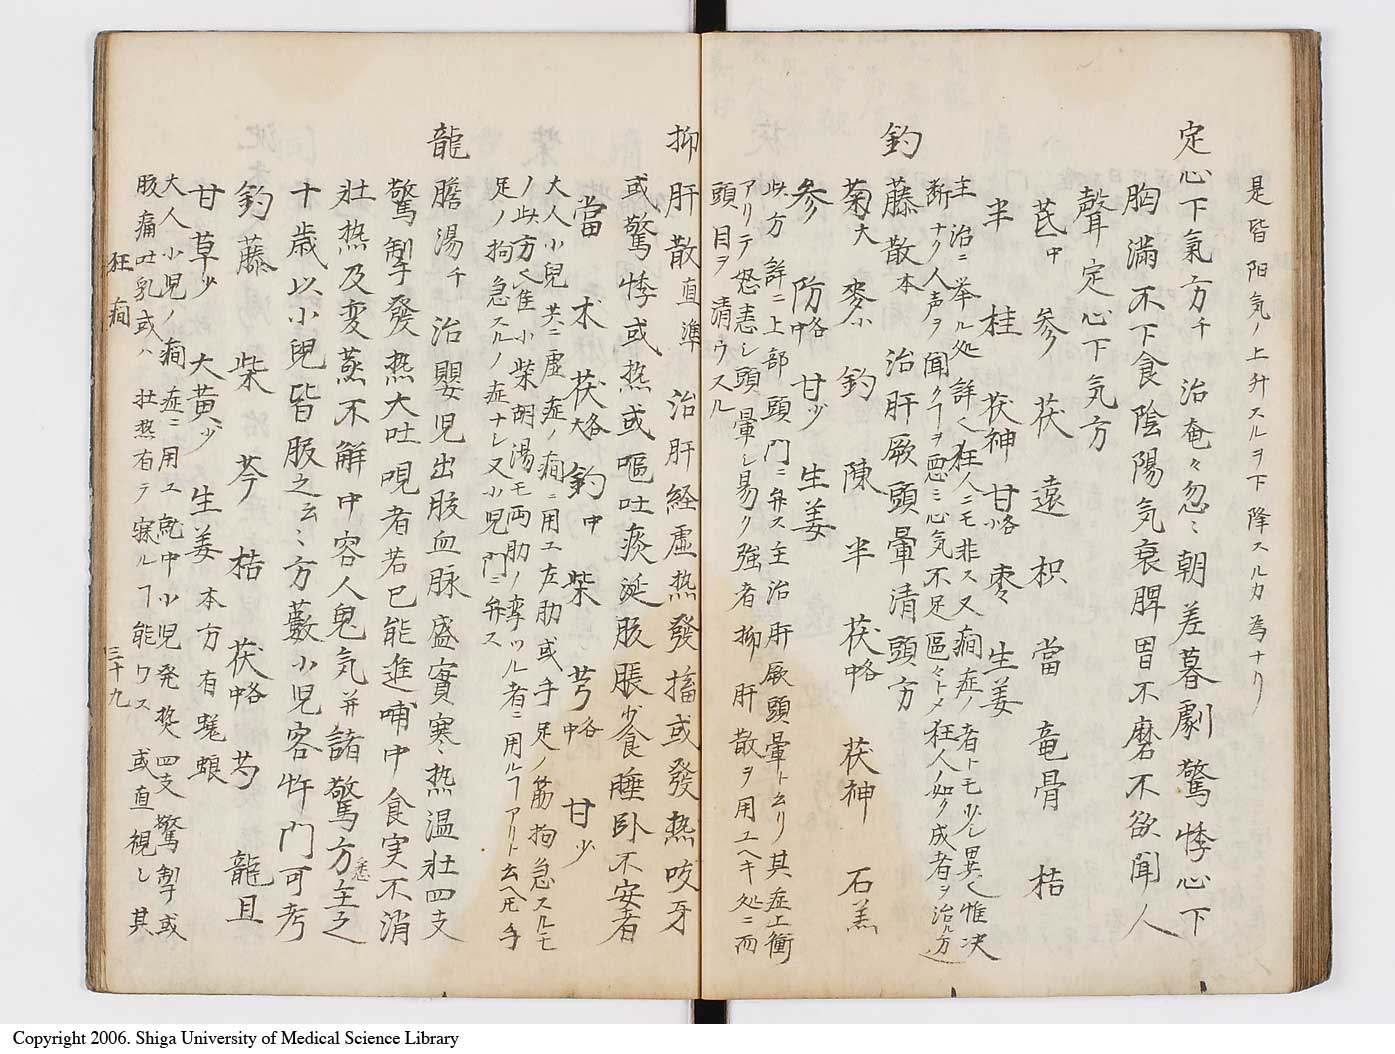 是皆阳気ノ上升スルヲ下降スルカ為ナリ
定心下氣方千 治奄々忽ミ朝差暮劇驚悸心下
胸滿不下食陰陽気衰脾胃不磨不欲聞人
聲定心下気方
芪中 参 茯 遠 枳 當 竜骨 桔
半 桂 茯神 甘略小 棗 生姜
主治ニ举ル処詳ヘ狂人ニモ非ス又癇症ノ者トモ少シ異ヘ惟决
断ナク人声ヲ聞クヿヲ悪ミ心気不足區々トメ狂人ノ如ク成者ヲ治ル方
釣藤散本 治肝厥頭暈清頭方
菊大 麥小 釣 陳 半 茯略中 茯神 石羔
参 防略中 甘少 生姜
此方詳ニ上部頭門ニ弁ス主治肝厥頭暈ト云リ其症上衝
アリテ怒恚シ頭暈シ易ク強者抑肝散ヲ用ユヘキ処ニ而
頭目ヲ清ウスル
抑肝散直準 治肝経虚热發搐或發热咬牙
或驚悸或热或嘔吐痰涎腹脹少食睡卧不安者
當 术 茯略大 釣中 柴 芎略中 甘少
大人小兒共ニ虚症ノ癇ニ用ユ左肋或手足ノ筋拘急スルモ
ノ此方ヘ隹小柴胡湯モ両肋ノ孪ツル者ニ用ルヿアリト云ヘ𪜈手
足ノ拘急スルノ症ナシ又小児門ニ弁ス
龍膽湯千 治嬰児出腹血脉盛實寒热温壯四支
驚掣發热大吐哯者若已能進哺中食实不消
壯热及変蒸不解中容人鬼気并諸驚方悉主之
十歳以小兒皆服之云ミ方藪小児客忤門可考
釣藤 柴 芩 桔 茯略中 芍 龍且
甘草少 大黄少 生姜 本方有蜣蜋
大人小児ノ癇症ニ用ユ就中小児発热四支驚掣或
腹痛吐乳或ハ壮热有テ寐ルヿ能ワス或直視し其
狂癇 三十九
Copyright 2006. Shiga University of Medical Science Library